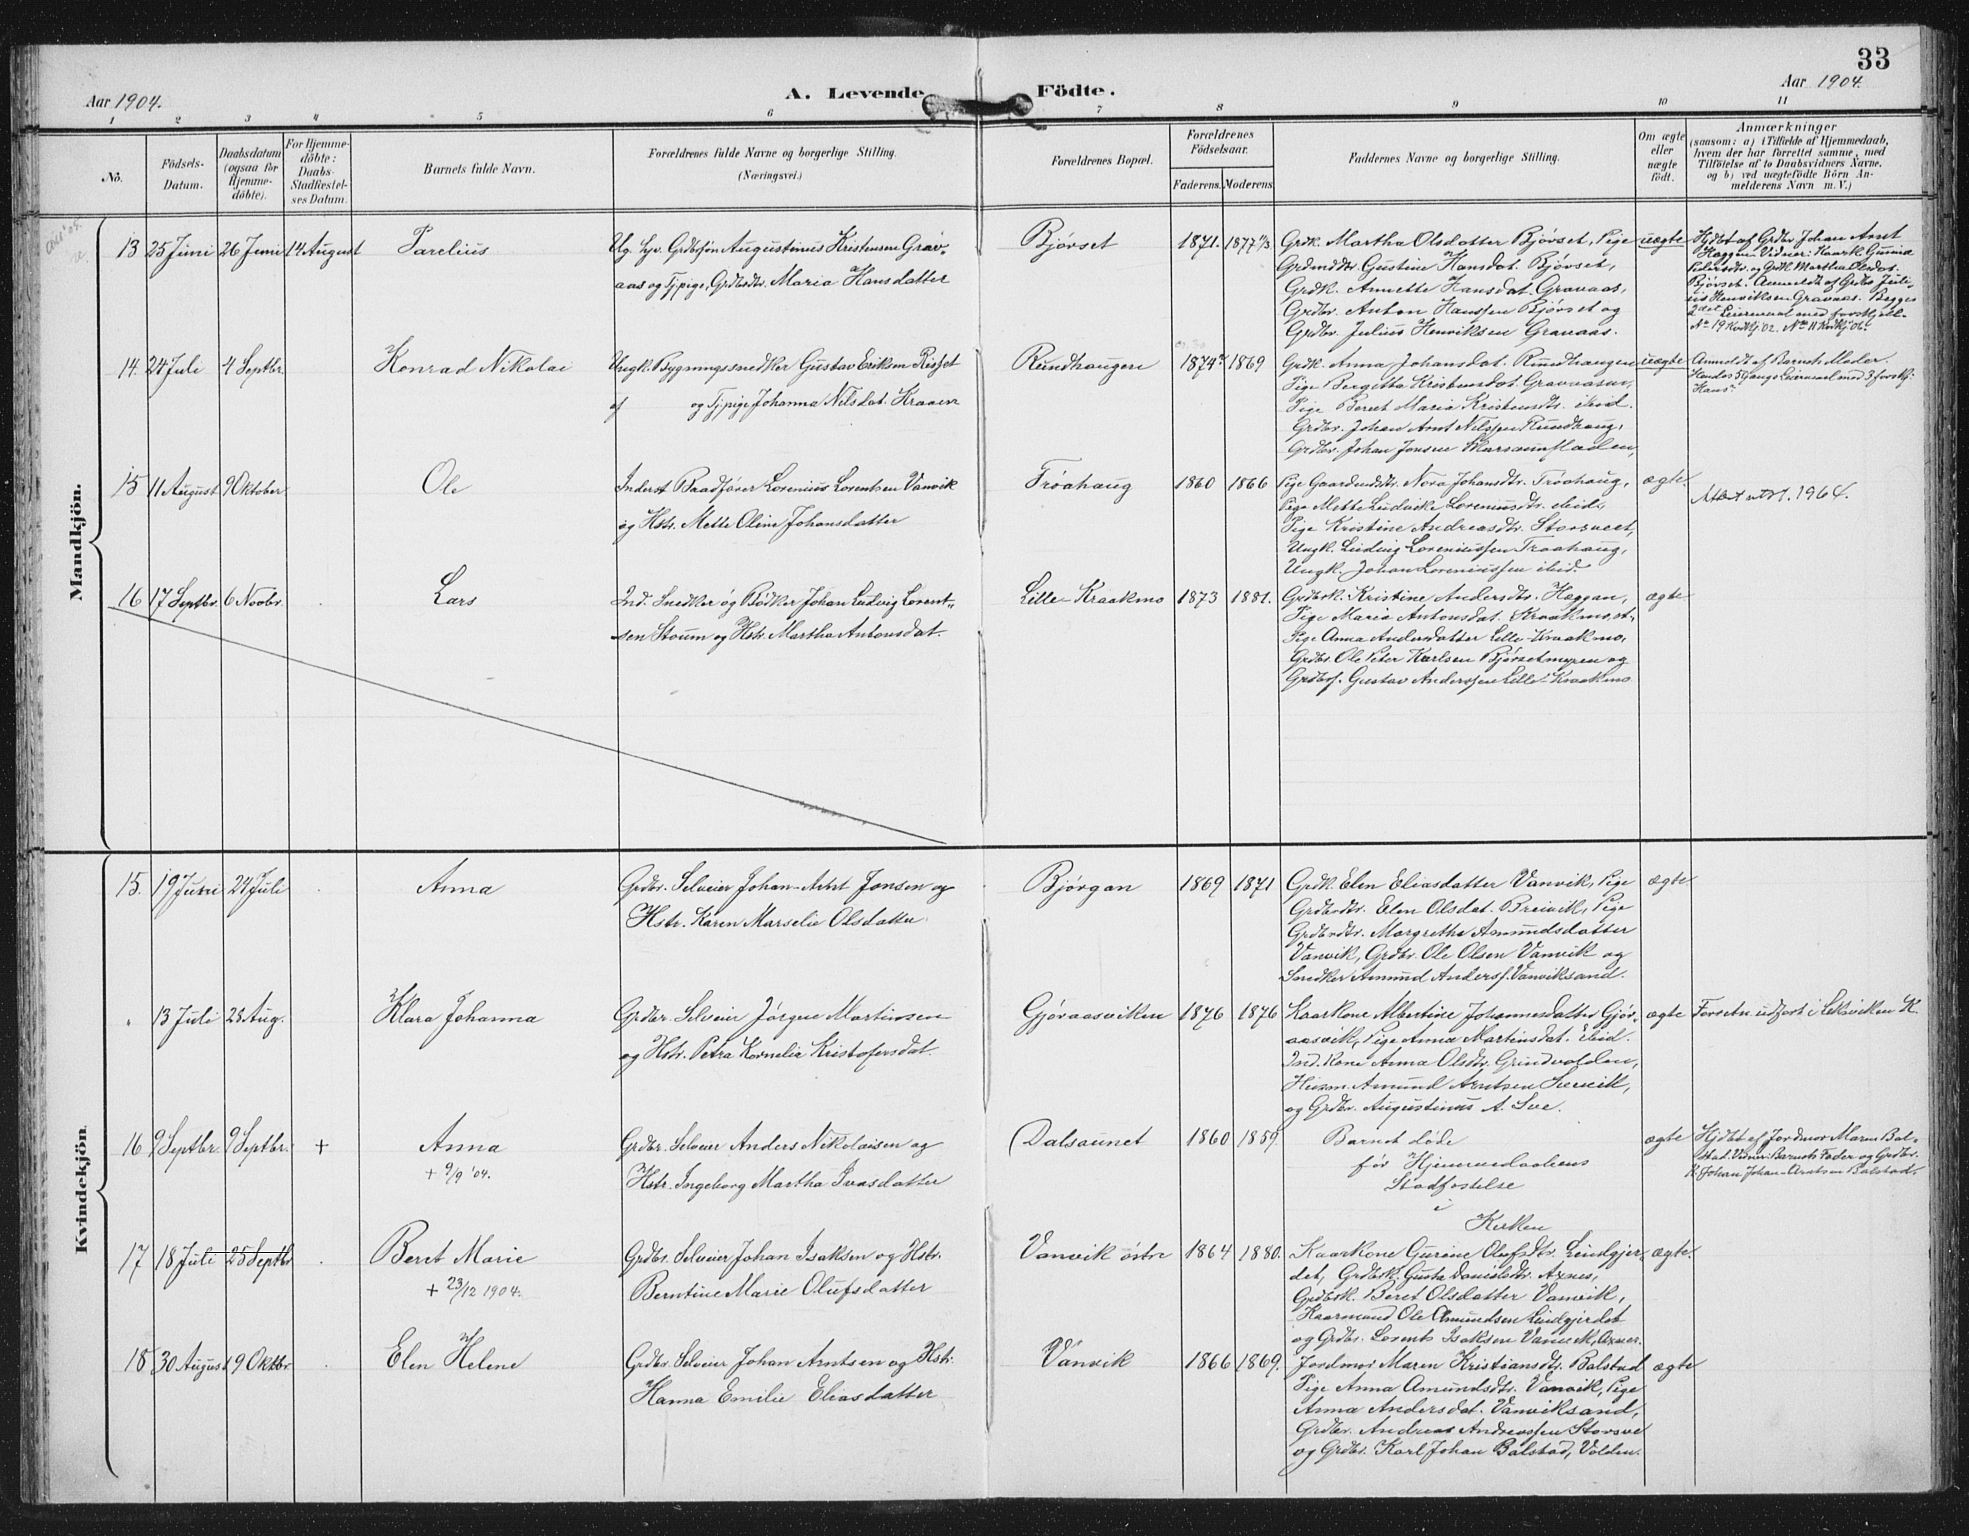 33
Aar 1904.
A. Levende Födte.
Aar 1904.
1 2 3 4 5 6 7 8 9 10 11
No.
Födsels-Datum.
Daabsdatum (ogsaa for Hjemme-döbte).
For Hjemme-döbte: Daabs-Stadfæstel-ses Datum.
Barnets fulde Navn.
Forældrenes fulde Navne og borgerlige Stilling.
(Næringsvei.)
Forældrenes Bopæl.
Forældrenes Födselsaar.
Faderens. Moderens.
Faddernes Navne og borgerlige Stilling.
Om ægte eller uægte födt.
Anmærkninger
(saasom: a) i Tilfælde af Hjemmedaab,
hvem der har forrettet samme, med
Tilföielse af to Daabsvidners Navne,
og b) ved uægtefödte Börn An-
melderens Navn m. V.)
Mandkjön.
13 25 Juni 26 Juni 14 August Parelius
Ug. Grdbsøn Augustinus Kristensen Grav-
aas og Tjpige, Grdbdtr. Maria Hansdatter
Bjørset 1871. 1877
Grdk. Martha Olsdatter Bjørset, Pige
Grdmddtr. Gustine Hansdat. Bjørset,
Grdk. Annette Hansdat. Gravaas,
Grdbr. Anton Hanssen Bjørset og
Grdbr. Julius Henriksen Gravaas.
uægte
Hjdbt af Grdbr Johan Arnt
Haggen. Vidner: Kaark Gurina
Pedersdtr. og Grdk Martha Olsdat.
Bjørset. Anmeldt af Grdbr Juli-
us Henriksen Gravaas. Begges
2det Leiermaal med forskjell-
14. 24 Juli 4 Septbr. Konrad Nikolai
Ungk. Bygningssnedker Gustav Eriksen Risset
og Tjpige Johanna Nilsdat. Kraaen
Rundhaugen 1874 1869
Grdk. Anna Johansdat. Rundhaugen
Pige Bergitta Kristensdat. Gravaasen,
Pige Beret Maria Kristensdtr. ibid.
Grdbr. Johan Arnt Nilssen Rundhaug,
Grdbr. Johan Jonsen Marsaunfladen,
uægte
Anmeldt af Barnets Moder.
15 11 August 9 Oktober. Ole
Inderst Baadfører Lorenius Lorentsen Vanvik
og Hstr. Mette Oline Johansdatter
Trøahaug 1860 1866
Pige Gaardmddtr. Nora Johansdtr. Trøahaug,
Pige Mette Ludvike Loreniusdtr. ibid.
Pige Kristine Andreasdtr. Storsveet,
Ungk. Ludvig Loreniussen Trøahaug,
Ungk. Johan Loreniussen ibid.
ægte.
Attest utst. 1964.
16 17 Septbr. 6 Novbr. Lars
Ind. Snedker og Bødker Johan Ludvig Lorent-
sen Stoum og Hstr. Martha Antonsdat.
Lille-Kraakmo 1873 1881.
Grdbsk. Kristine Andersdtr. Haggan,
Pige Maria Antonsdat. Kraakmoet,
Pige Anna Andersdatter Lille-Kraakmo,
Grdbr. Ole Peter Karlsen Bjørsetmyren og
Grdbsf. Gustav Anderssen Lille-Kraakmo
ægte
Kvindekjön.
15. 19 Juni 24 Juli Anna
Grdbr. Selveier Johan Arnt Jonsen og
Hstr. Karen Marselie Olsdatter
Bjørgan 1869 1871
Grdk. Elen Eliasdatter Vanvik, Pige
Grdbrdtr. Elen Olsdat. Breivik, Pige
Grdbrdtr. Margrethe Amundsdatter
Vanvik, Grdbr. Ole Olsen Vanvik og
Snedker Amund Andersf. Vanviksand.
ægte
" 13 Juli 28 Aug. Klara Johanna
Grdbr. Selveier Jørgen Martinsen
og Hstr. Petra Kornelie Kristofersdat.
Gjøraasviken 1876 1876
Kaarkone Albertine Johannesdatter Gjør-
aasvik, Pige Anna Martinsdat. Ibid.
Ind. Kone Anna Olsdtr. Grindvolden,
Husm. Amund Arntsen Sørvik,
og Grdbr. Augustinus A. Sve.
ægte
Forretn. udført i Leksviken K.
16 9 Septbr. 9 Septbr. + Anna
+ 9/9 '04.
Grdbr. Selveier Anders Nikolaisen og
Hstr. Ingeborg Martha Ivarsdatter
Dalsaunet 1860 1859
Barnet døde
før Hjemmedaabens
Stadfæstelse
i
Kirken
ægte
Hjdbt af Jordmor Maren Bal-
stad. Vidner: Barnets Fader og Grdbr.
Johan Johan-Arntsen Balstad.
17 18 Juli 25 Septbr Beret Marie
+ 23/12 1904.
Grdbr. Selveier Johan Isaksen og Hstr.
Berntine Marie Olufsdatter
Vanvik østre 1864 1880.
Kaarkone Gurine Olufsdtr. Lindgjer-
det, Grdbsk. Gusta Danielsdtr. Axnes,
Grdbsk. Beret Olsdatter Vanvik,
Kaarmand Ole Amundsen Lindgjerdet
og Grdbr. Lorents Isaksen Vanvik, Axnes.
ægte.
18 30 August 9 Oktbr Elen Helene
Grdbr. Selveier Johan Arntsen og Hstr.
Hanna Emilie Eliasdatter
Vanvik 1866 1869.
Jordmor Maren Kristiansdtr. Balstad
Pige Anna Amundsdtr. Vanvik, Pige
Anna Andersdat. Vanviksand,
Grdbr. Andreas Andreassen Storsve
og Grdbr. Karl Johan Balstad, Volden.
ægte